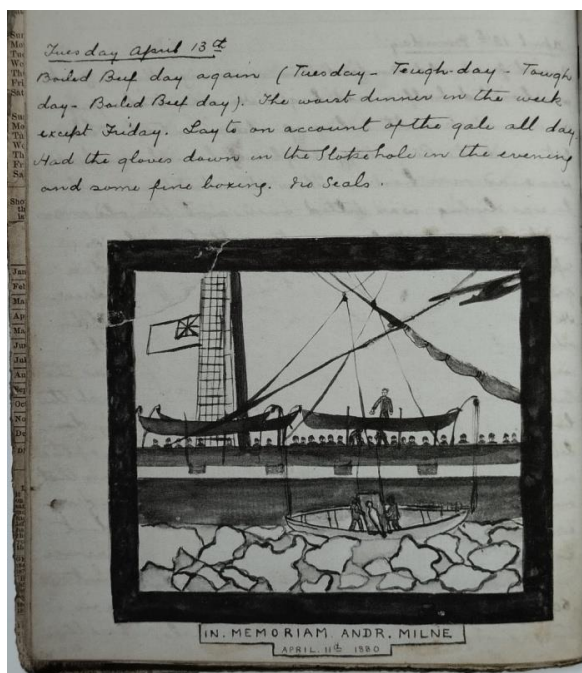 Tuesday April 13th
Boiled Beef day again (Tuesday - Tough-day - Tough
day - Boiled Beef day). The worst dinner in the week
except Friday. Lay to on account of the gale all day
Had the gloves down in the Stokehole in the evening
and some fine boxing. No Seals.
IN. MEMORIAM. ANDR. MILNE
APRIL. 11th 1880